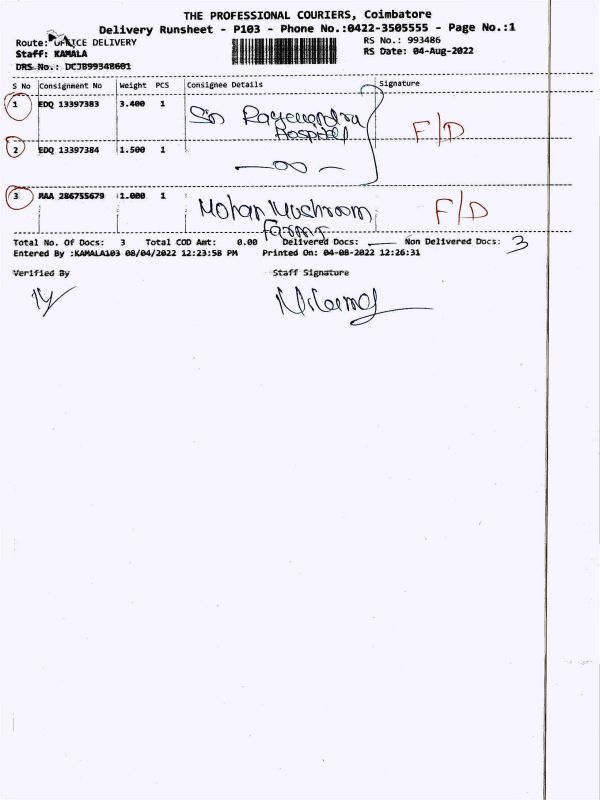 THE PROFESSIONAL COURIERS, Coimbatore
Delivery Runsheet - P103 - Phone No.:0422-3505555 - Page No.:1
Route: OFFICE DELIVERY
RS No.: 993486
Staff: KAMALA
RS Date: 04-Aug-2022
DRS No.: DCJB99348601
S No Consignment No Weight PCS Consignee Details Signature
1 EDQ 13397383 3.400 1 Sri Hospital F/D
2 EDQ 13397384 1.500 1
3 RAA 286755679 1.000 1 Mohan Mushroom Farms F/D
Total No. Of Docs: 3 Total COD Amt: 0.00 Delivered Docs: — Non Delivered Docs: 3
Entered By :KAMALA103 08/04/2022 12:23:58 PM Printed On: 04-08-2022 12:26:31
Verified By Staff Signature